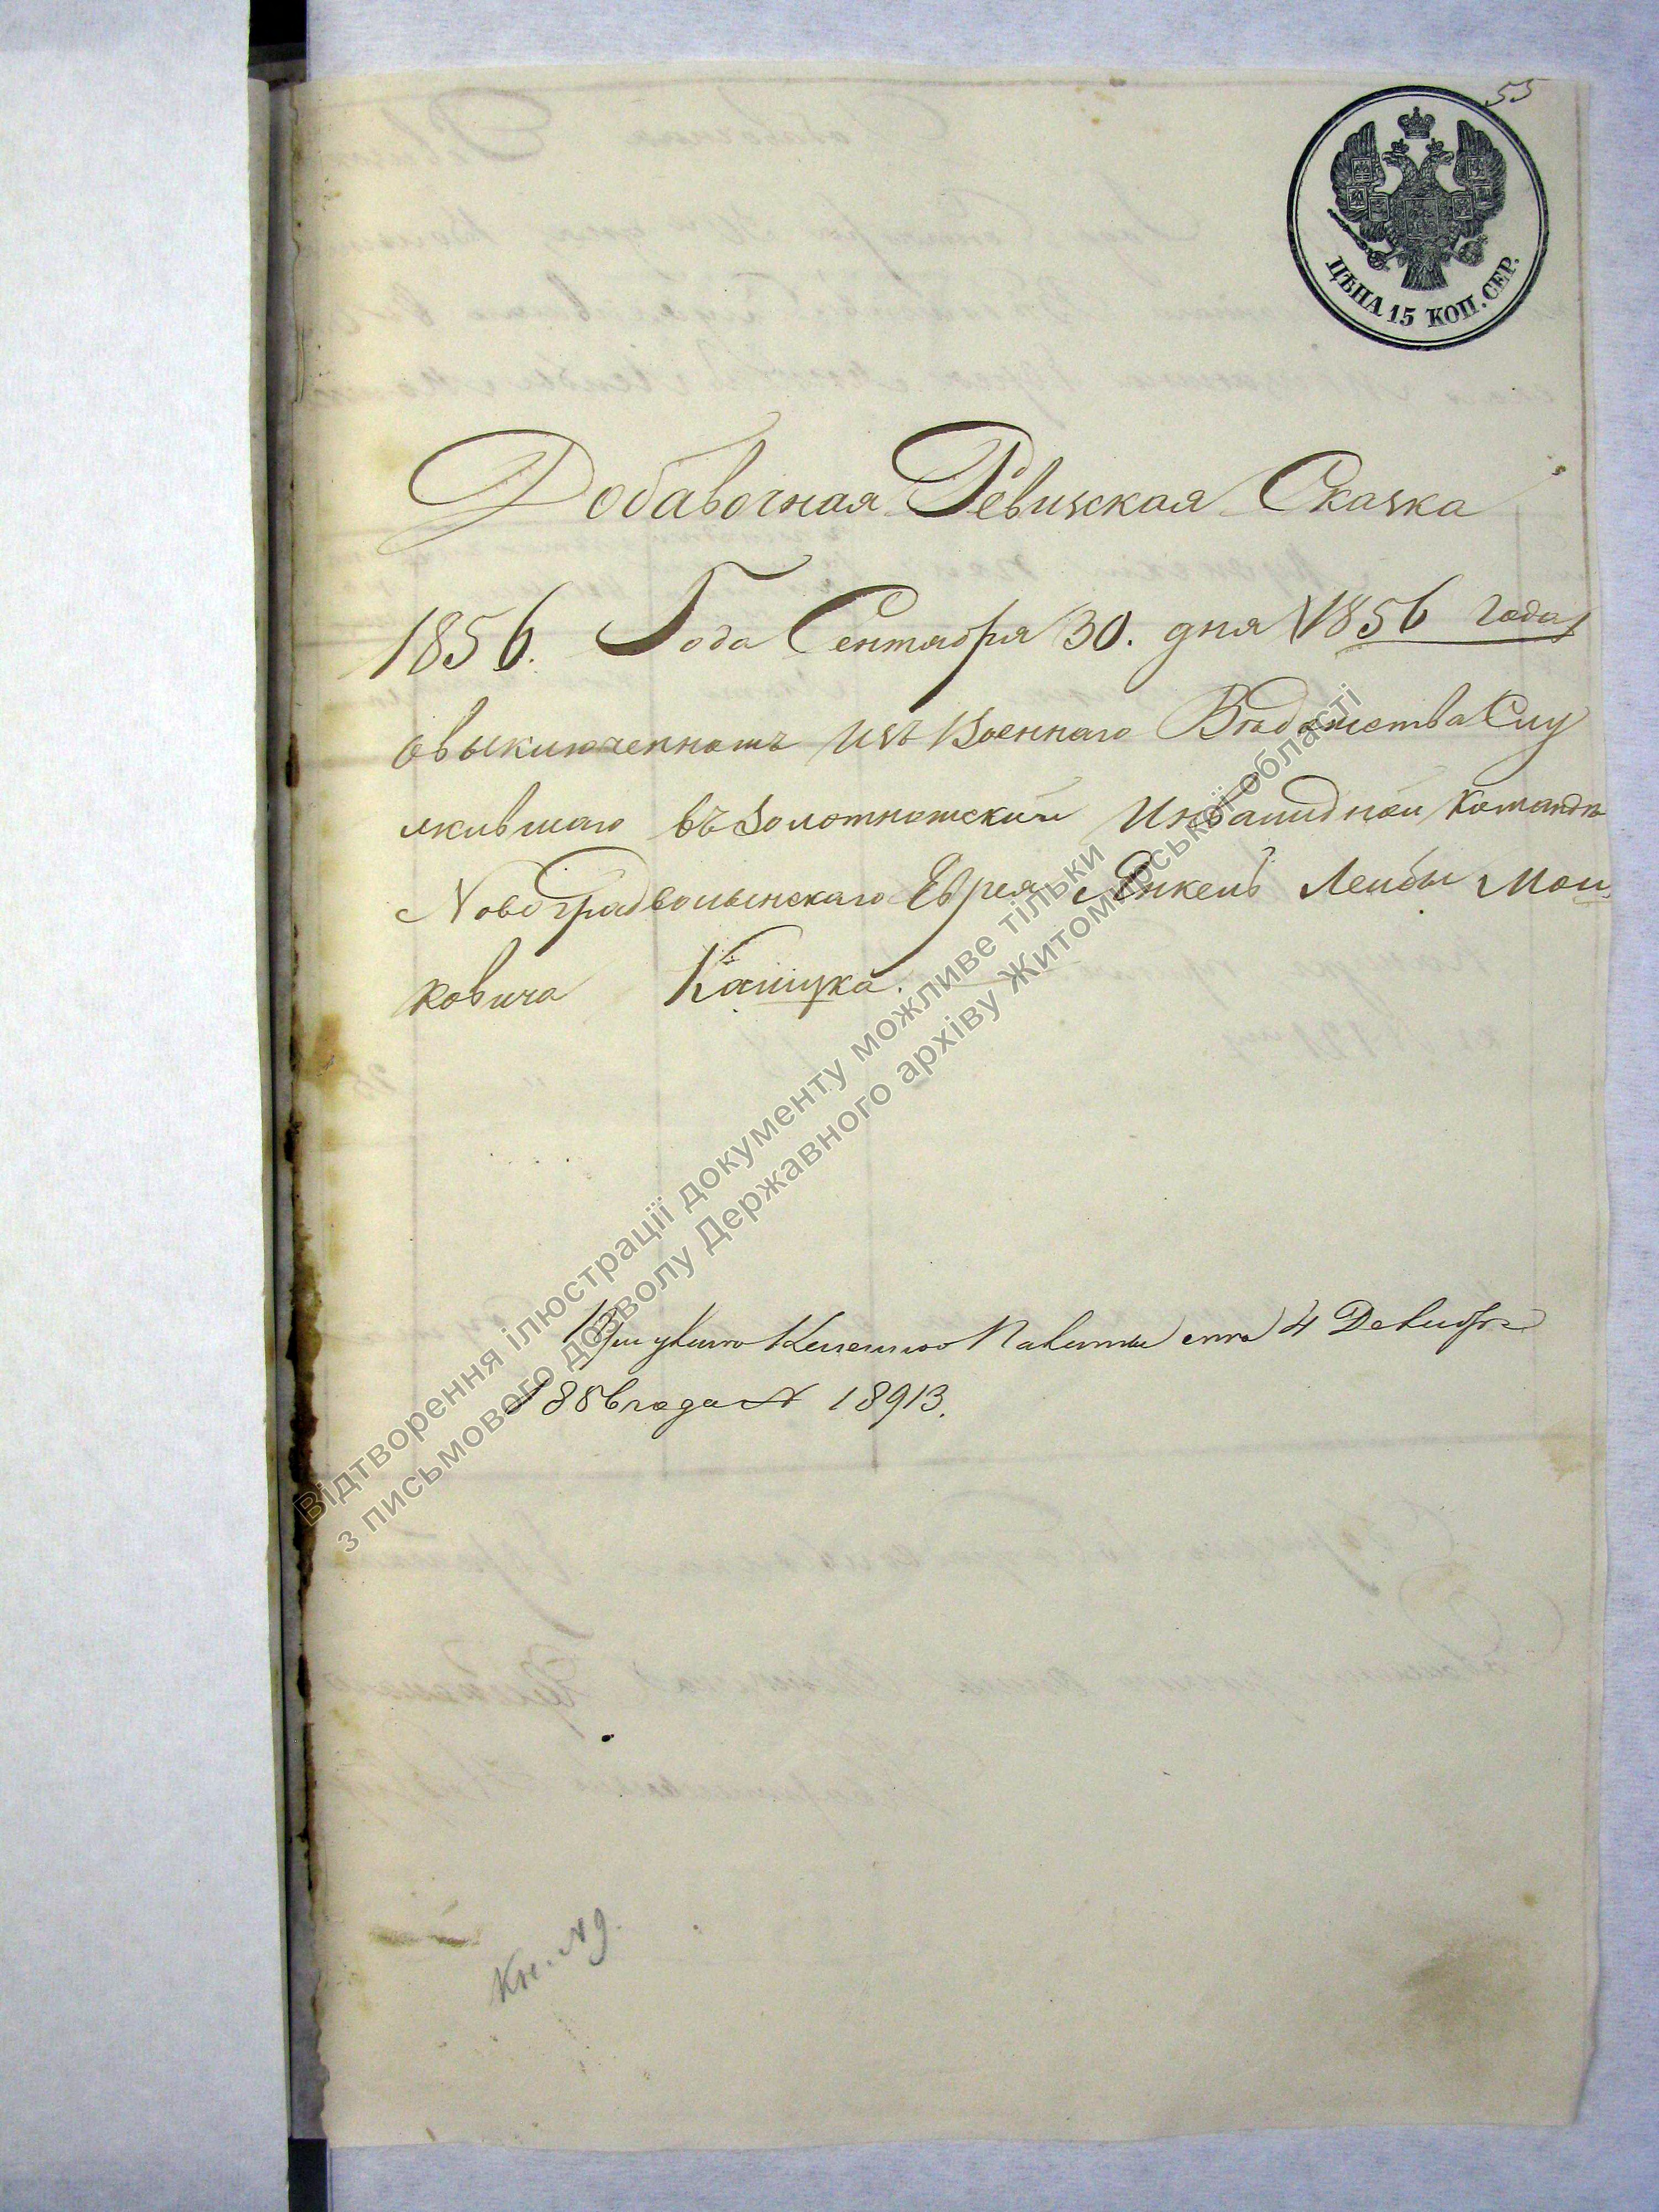 55
ЦѢНА 15 КОП. СЕР.
Добавочная Ревизская Сказка
1856. Года Сентября 30. дня 1856 года
овыключенномъ изъ Военнаго Вѣдомства Слу
жившаго въ Золотношской Инвалидной Командѣ
Новоградволынскаго Еврея Янкель Лейбы Мош
ковича Кащука.
4 Декабря
1856 года № 18913.
Кн. № 9.
Відтворення ілюстрації документу можливе тільки
з письмового дозволу Державного архіву Житомирської області